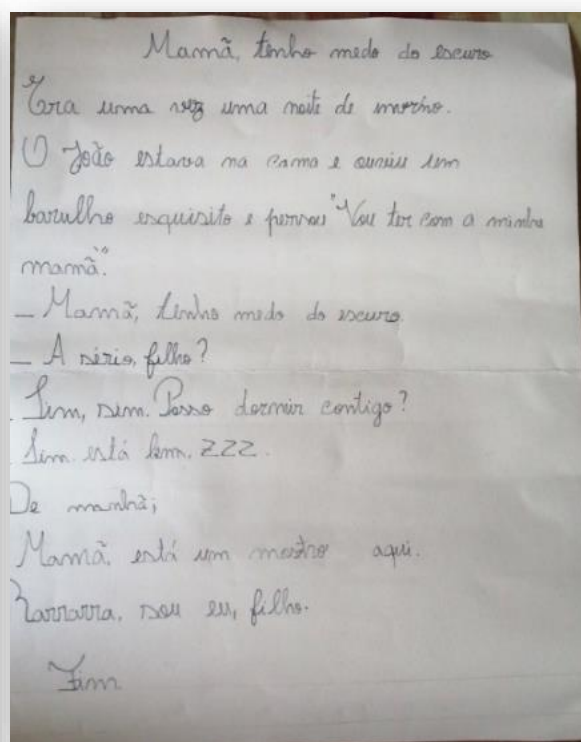 Mamã, tenho medo do escuro
Era uma vez uma noite de
O João estava na cama e ouviu um
barulho esquisito e pensou "Vou ter com a minha
mamã."
_ Mamã, tenho medo do escuro.
_ A sério, filho?
_ Sim, sim. Posso dormir contigo?
_ Sim. está bem. ZZZ.
De manhã;
Mamã, está um mostro aqui.
sou eu, filho.
Fim